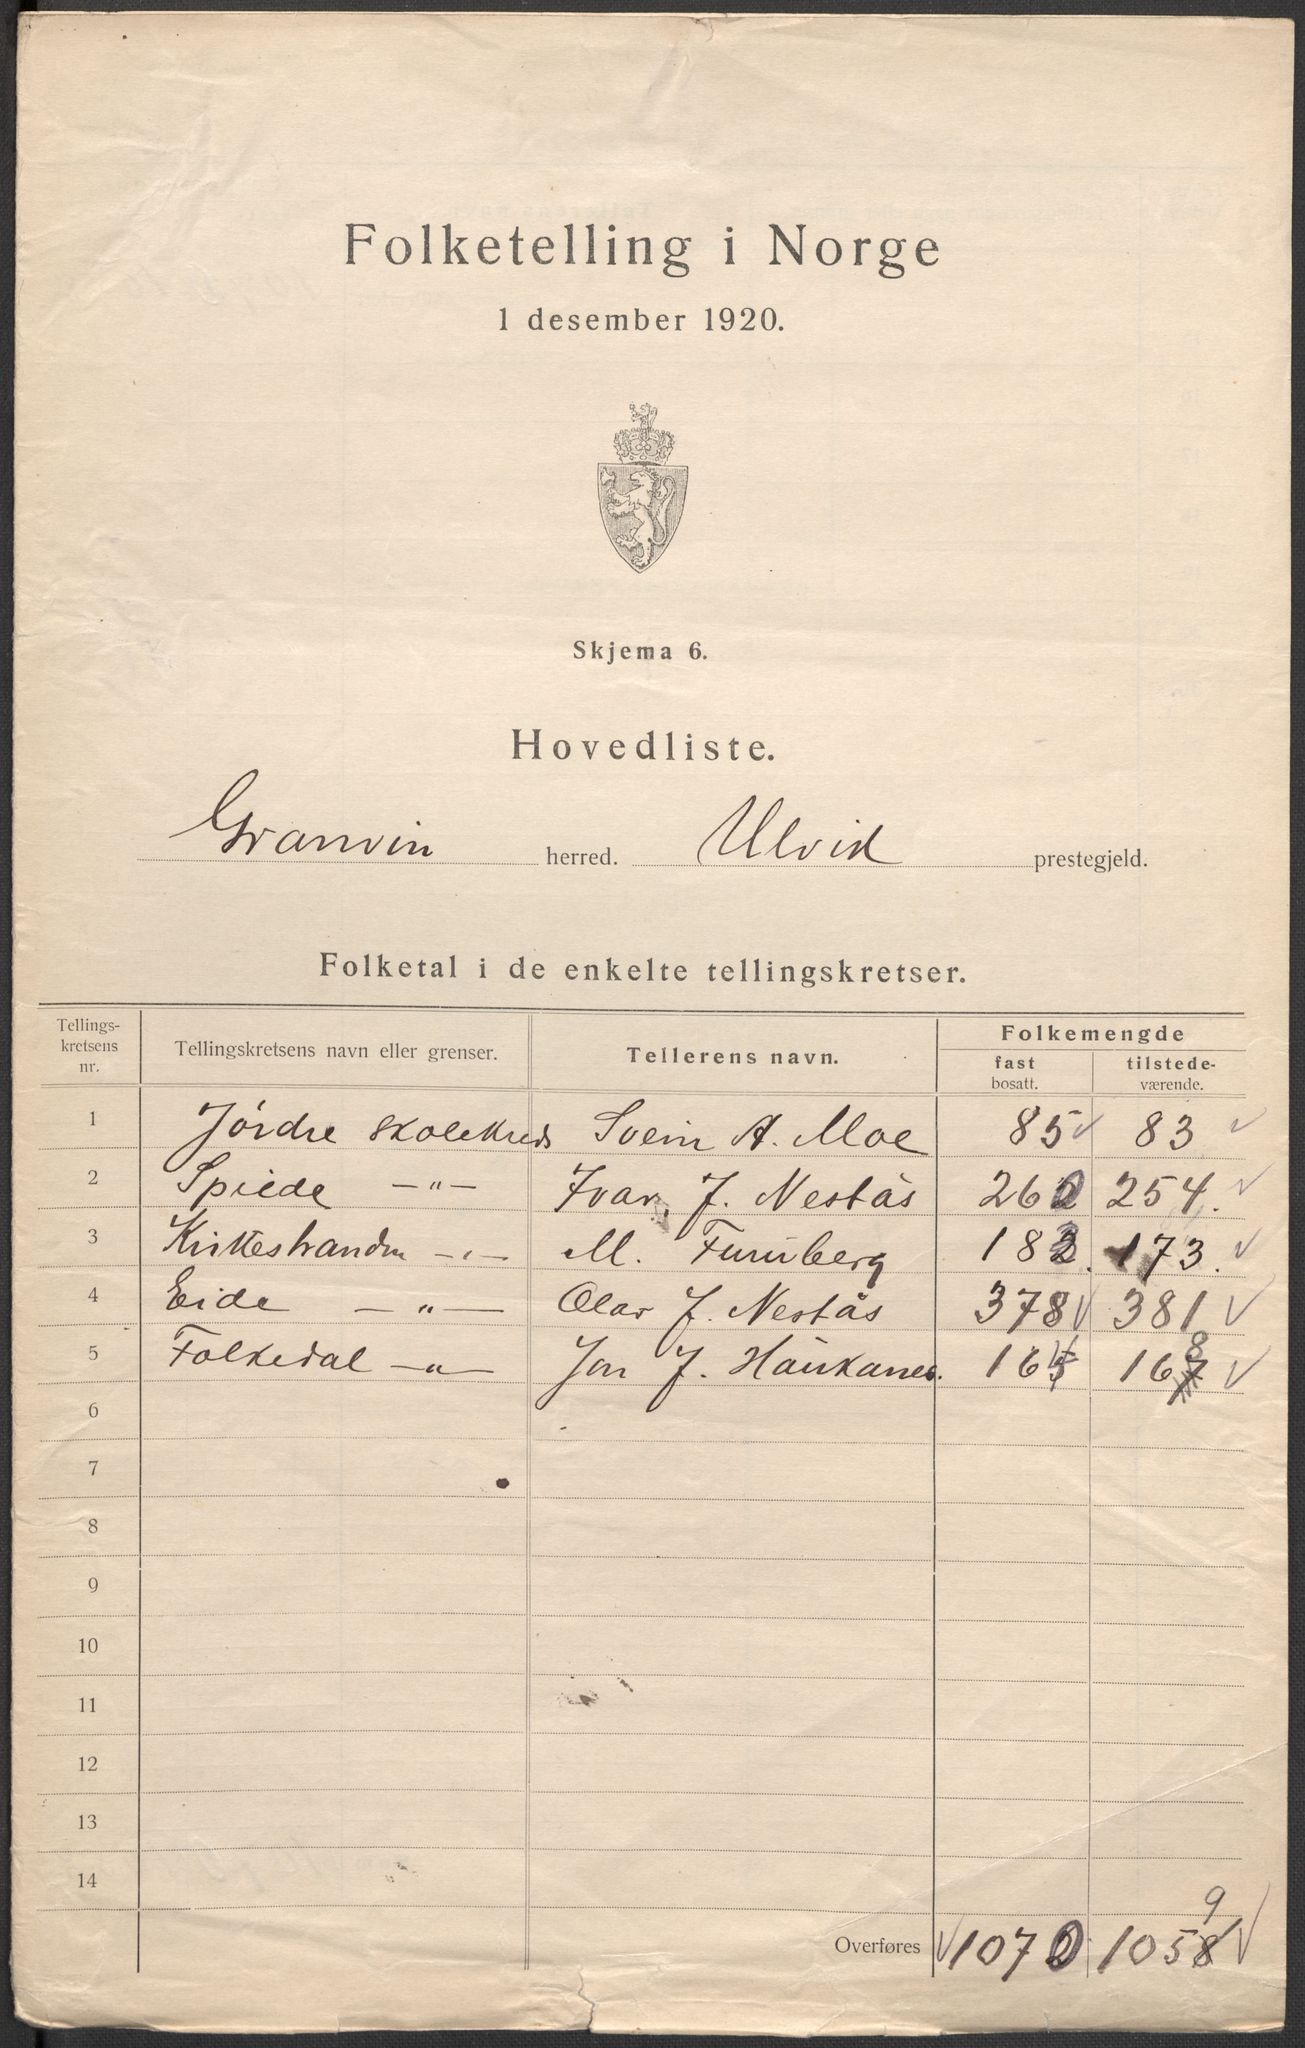 Folketelling i Norge
1 desember 1920.
Skjema 6.
Hovedliste.
Granvin herred. Ulvik prestegjeld.
Folketal i de enkelte tellingskretser.
Tellings-kretsens nr. Tellingskretsens navn eller grenser. Tellerens navn. Folkemengde fast bosatt. tilstede-værende.
1 Jórdre skolekreds Svein A. Moe 85 ✓ 83 ✓
2 Spilde —"— Ivar J. Nestås 260 254. ✓
3 Kirkestranden —"— M. Furuberg 183. 173. ✓
4 Eide —"— Olav J. Nestås 378 ✓ 381 ✓
5 Folkedal —"— Jon J. Haukanes. 164 168 ✓
6
7
8
9
10
11
12
13
14
Overføres ✓ 1070 1059 ✓